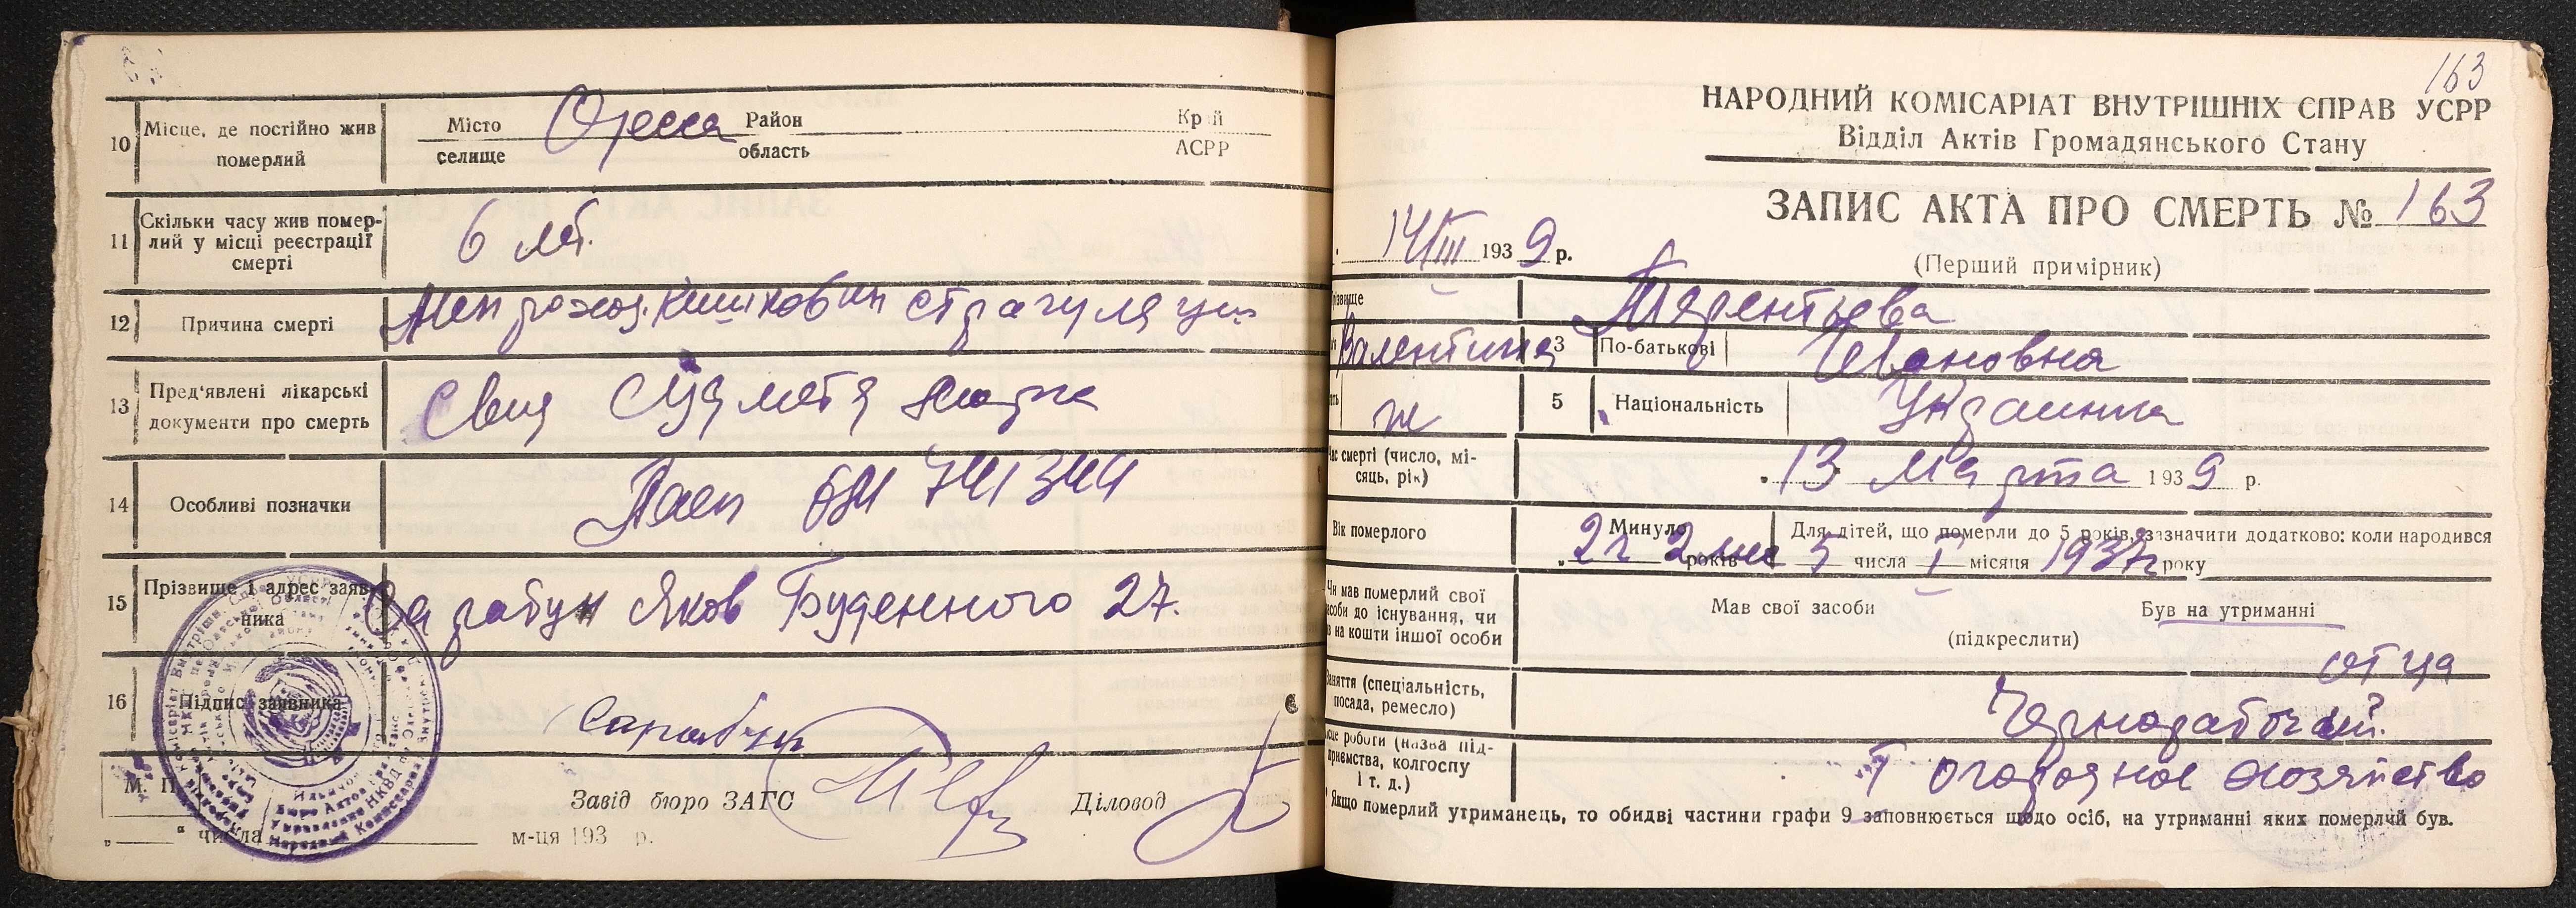 10 Місце, де постійно жив померлий
Місто селище Одесса Район область Край АСРР
11 Скільки часу жив помер-
лий у місці реєстрації
смерті
6 лт.
12 Причина смерті
кишковии странгуляции
13 Пред'явлені лікарські
документи про смерть
Свид Судмед
14 Особливі позначки
Пасп 741344
15 Прізвище і адрес заяв-
ника
Сарабун Яков Буденного 27.
16 Підпис заявника
Сарабун
М. П.
Завід бюро ЗАГС
Діловод
" числа м-ця 193 р.
163
НАРОДНИЙ КОМІСАРІАТ ВНУТРІШНІХ СПРАВ УСРР
Відділ Актів Громадянського Стану
ЗАПИС АКТА ПРО СМЕРТЬ № 163
14/III 1939 р.
(Перший примірник)
різвище Терентьева
Валентина 3 По-батькові Ивановна
ж 5 Національність Украинка
ас смерті (число, мі-
сяць, рік)
13 Марта 1939 р.
Вік померлого
Минуло років 2 г 2 мес
Для дітей, що померли до 5 років, зазначити додатково: коли народився
5 числа I місяця 1937 року
Чи мав померлий свої
асоби до існування, чи
в на кошти іншої особи
Мав свої засоби Був на утриманні
(підкреслити)
отца
Заняття (спеціальність,
посада, ремесло)
Чернорабочий
сце роботи (назва під-
приємства, колгоспу
і т. д.)
огородное хозяйство
Якщо померлий утриманець, то обидві частини графи 9 заповнюється щодо осіб, на утриманні яких померлий був.